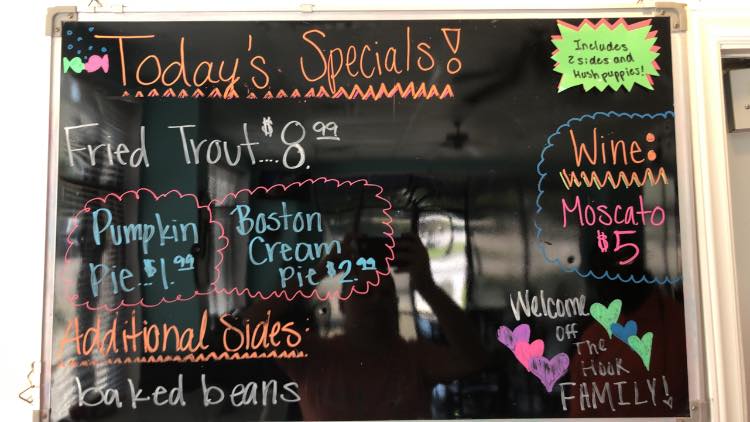 Today's Specials!
Includes
2 sides and
Hushpuppies!
Fried Trout....$8.99
Pumpkin
Pie..$1.99
Boston
Cream
Pie $2.99
Wine:
Moscato
$5
Additional Sides:
baked beans
Welcome
Off
The
Hook
FAMILY!